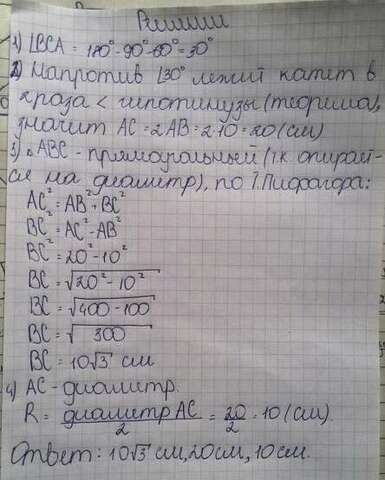 Решение
1) ∠BCA = 180°-90°-60°=30°
2) Напротив ∠30° лежит катет в
2 раза < гипотинузы (теорема),
значит AC=2AB=2·10=20(см)
3) ▵ABC-прямоугольный (т.к. опирает-
ся на диаметр), по т.Пифагора:
AC²=AB²+BC²
BC²=AC²-AB²
BC²=20²-10²
BC=√20²-10²
BC=√400-100
BC=√300
BC=10√3 см
4) AC-диаметр.
R = диаметр AC/2 = 20/2 = 10 (см).
Ответ: 10√3 см, 20см, 10см.